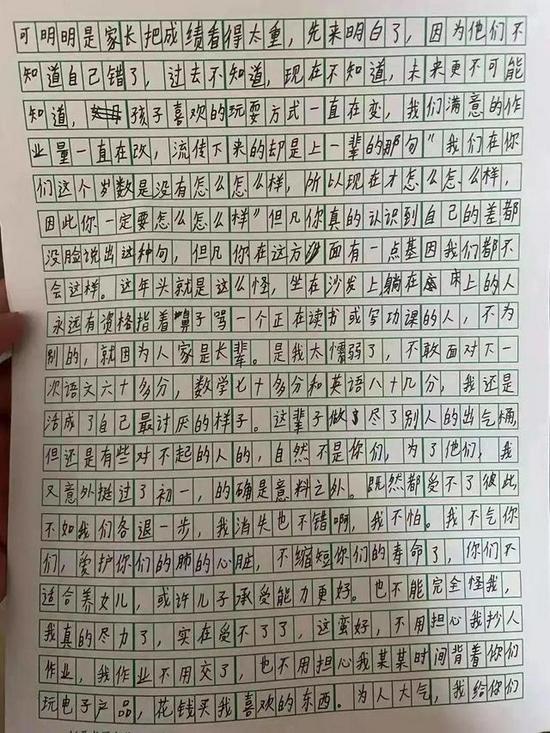 可明明是家长把成绩看得太重，先来明白了，因为他们不
知道自己错了，过去不知道，现在不知道，未来更不可能
知道，孩子喜欢的玩耍方式一直在变，我们满意的作
业量一直在改，流传下来的却是上一辈的那句"我们在你
们这个岁数是没有怎么怎么样，所以现在才怎么怎么样，
因此你一定要怎么怎么样"但凡你真的认识到自己的差都
没脸说出这种句，但凡你在这方面有一点基因我们都不
会这样。这年头就是这么怪，坐在沙发上躺在床上的人
永远有资格指着鼻子骂一个正在读书或写功课的人，不为
别的，就因为人家是长辈。是我太懦弱了，不敢面对下一
次语文六十多分，数学七十多分和英语八十几分，我还是
活成了自己最讨厌的样子。这辈子做尽了别人的出气桶，
但还是有些对不起的人的，自然不是你们，为了他们，我
又意外挺过了初一，的确是意料之外。既然都受不了彼此，
不如我们各退一步，我消失也不错啊，我不怕。我不气你
们，爱护你们的肺的心脏，不缩短你们的寿命了，你们不
适合养女儿，或许儿子承受能力更好。也不能完全怪我，
我真的尽力了，实在受不了了，这蛮好，不用担心我抄人
作业，我作业不用交了，也不用担心我某某时间背着你们
玩电子产品，花钱买我喜欢的东西。为人大气，我给你们